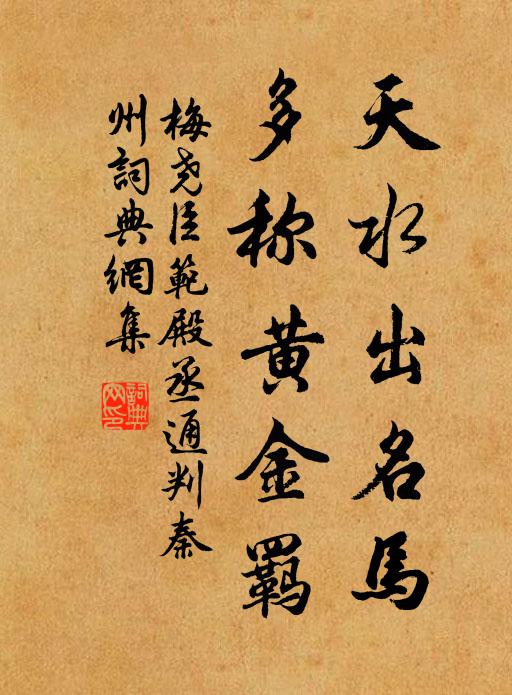 天水出名馬
多称黄金羈
梅尧臣範殿丞通判秦
州詞典網集
詞典
网印